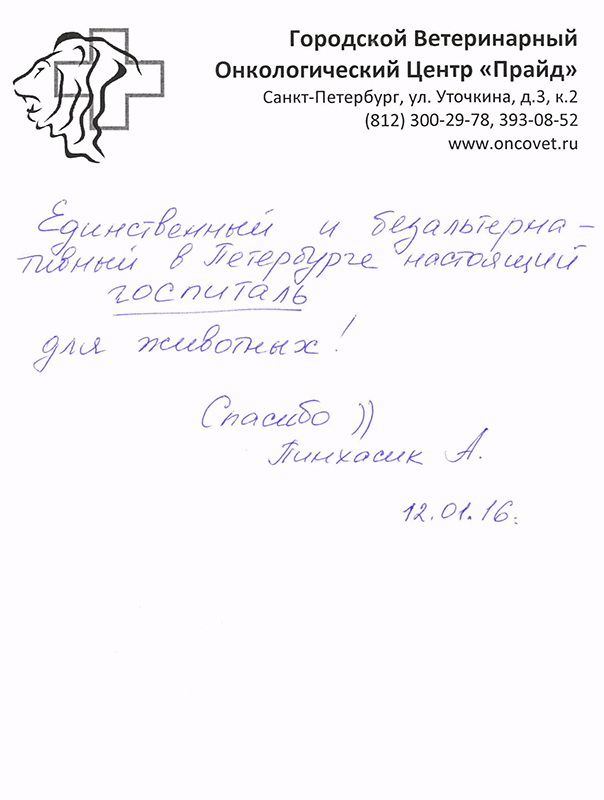 Городской Ветеринарный
Онкологический Центр «Прайд»
Санкт-Петербург, ул. Уточкина, д.3, к.2
(812) 300-29-78, 393-08-52
www.oncovet.ru
Единственный и безальтерна-
тивный в Петербурге настоящий
госпиталь
для животных!
Спасибо ))
Пинхасик А.
12.01.16.